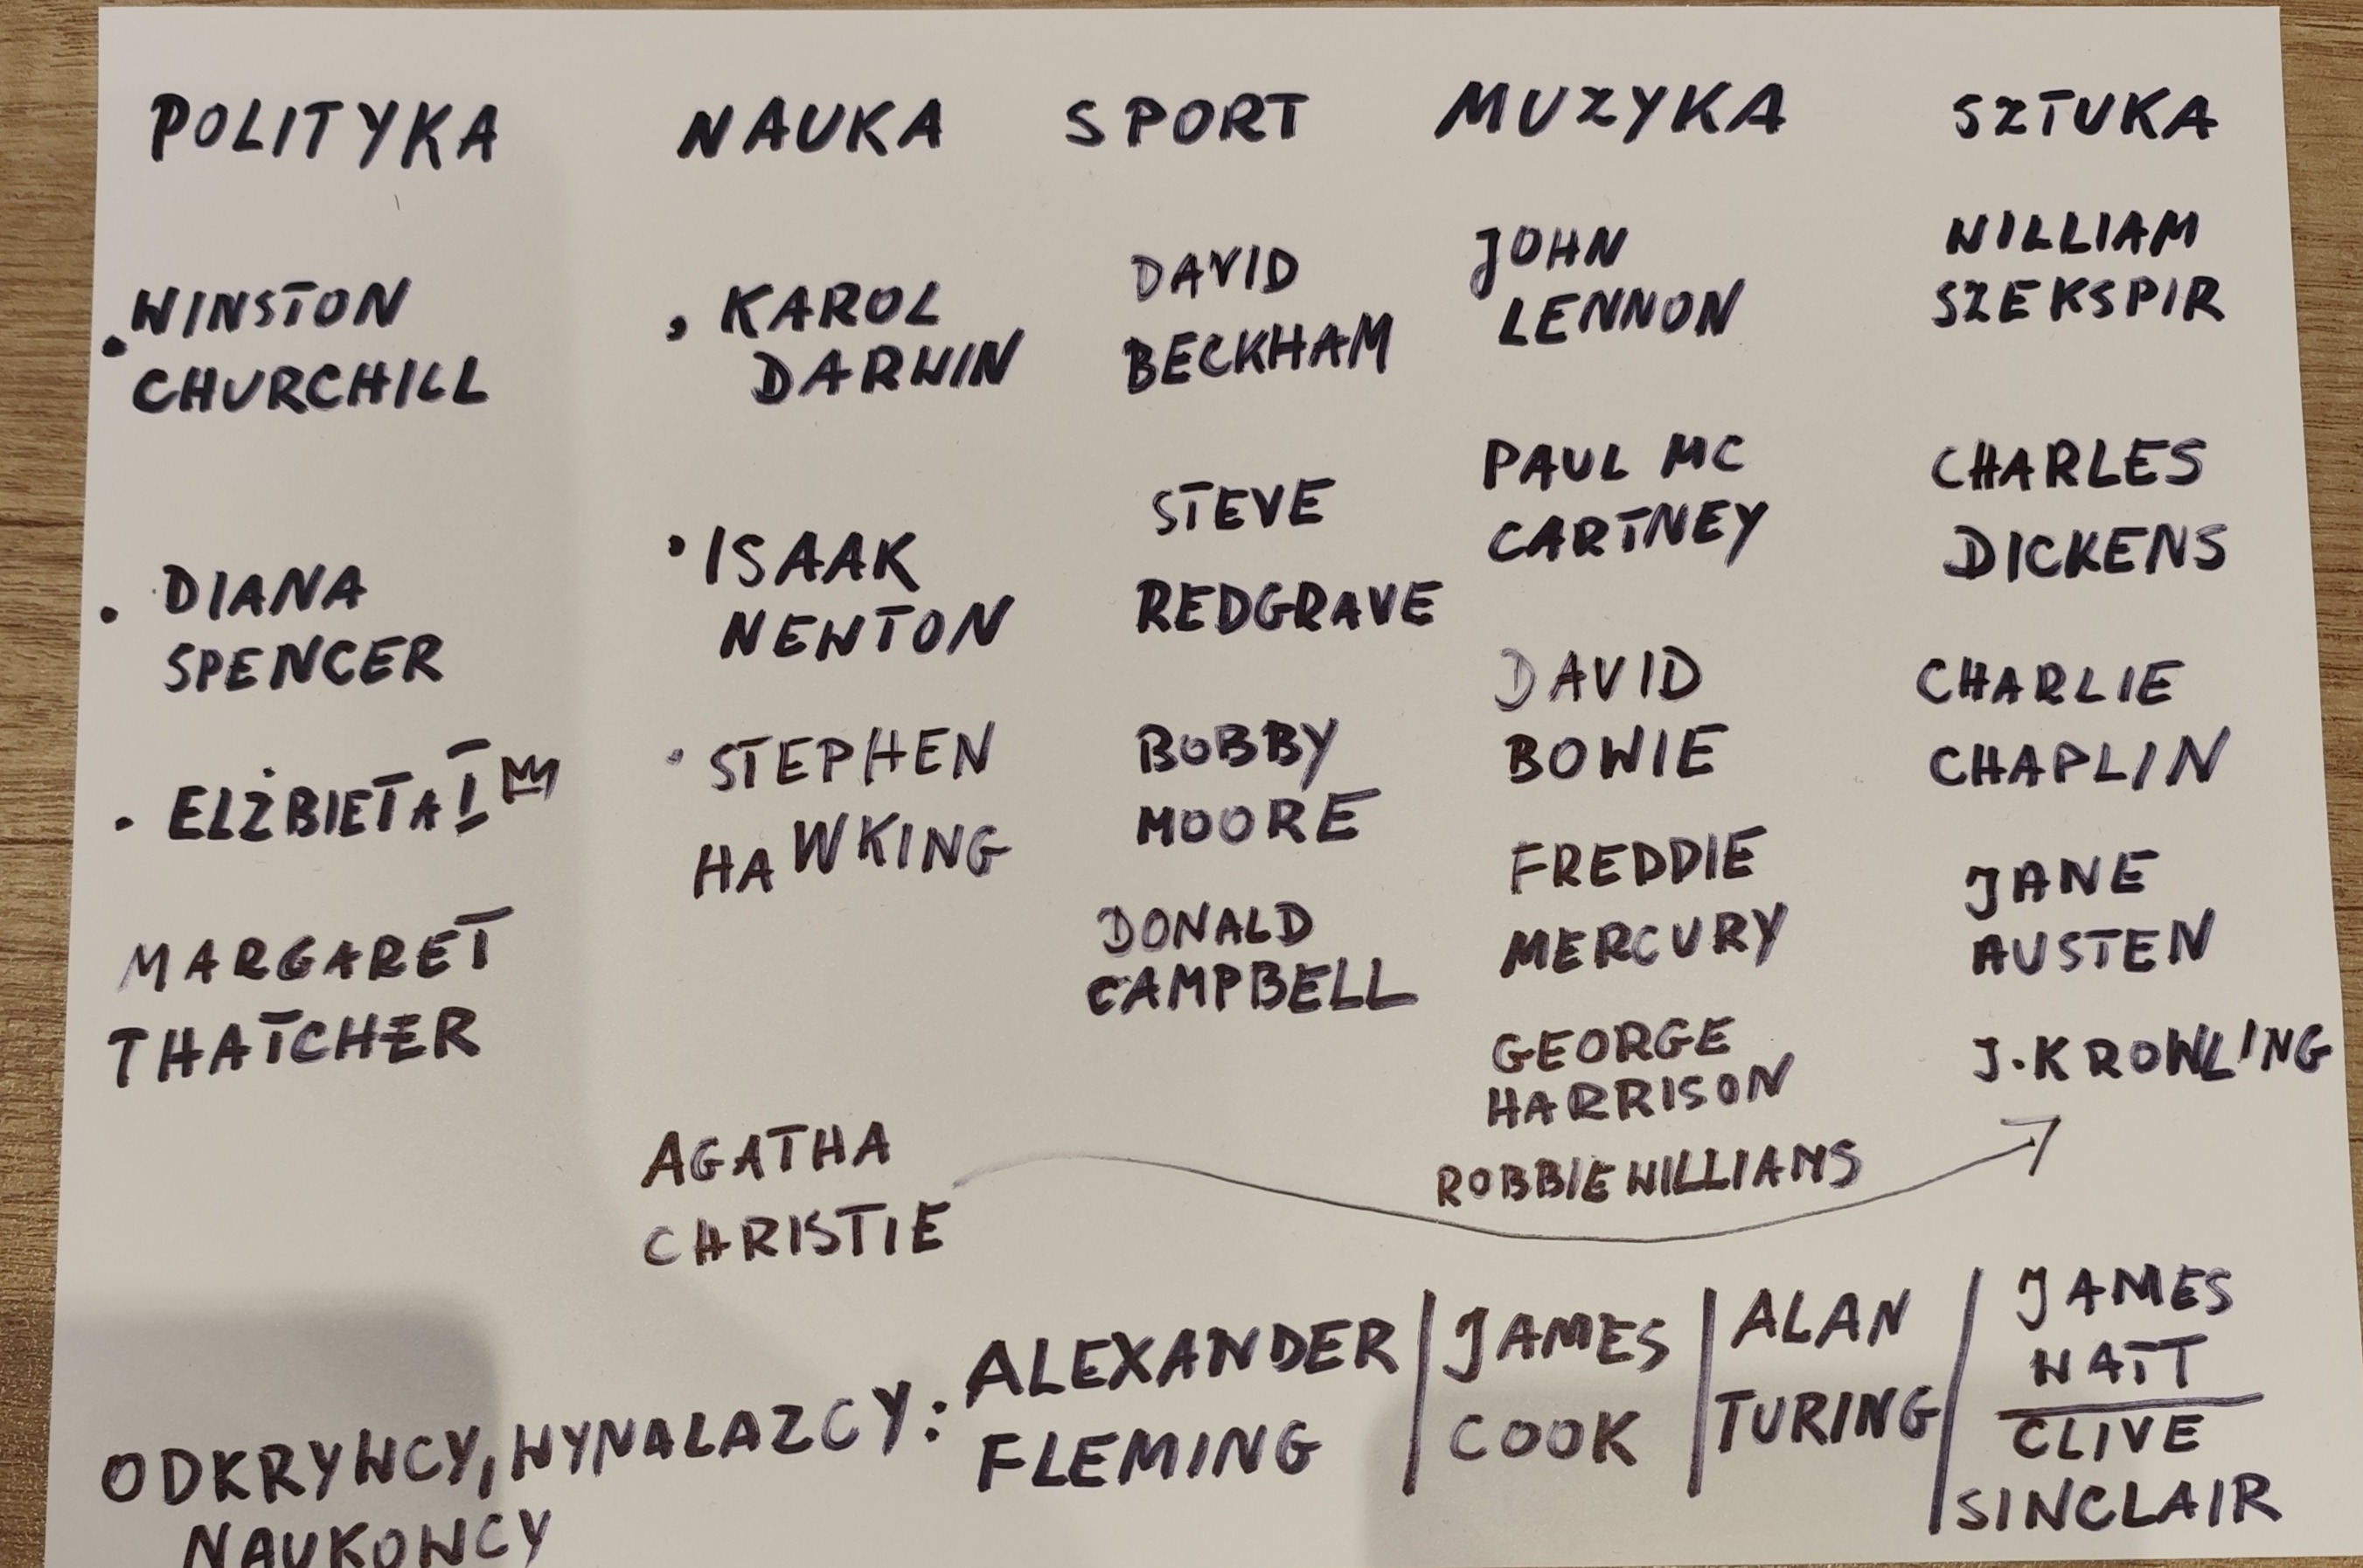 POLITYKA
WINSTON
CHURCHILL
DIANA
SPENCER
ELŻBIETA I
MARGARET
THATCHER
NAUKA
KAROL
DARWIN
ISAAK
NEWTON
STEPHEN
HAWKING
AGATHA
CHRISTIE
SPORT
DAVID
BECKHAM
STEVE
REDGRAVE
BOBBY
MOORE
DONALD
CAMPBELL
MUZYKA
JOHN
LENNON
PAUL MC
CARTNEY
DAVID
BOWIE
FREDDIE
MERCURY
GEORGE
HARRISON
ROBBIE WILLIAMS
SZTUKA
WILLIAM
SZEKSPIR
CHARLES
DICKENS
CHARLIE
CHAPLIN
JANE
AUSTEN
J.K ROWLING
ODKRYWCY, WYNALAZCY:
NAUKOWCY
ALEXANDER
FLEMING
JAMES
COOK
ALAN
TURING
JAMES
WATT
CLIVE
SINCLAIR